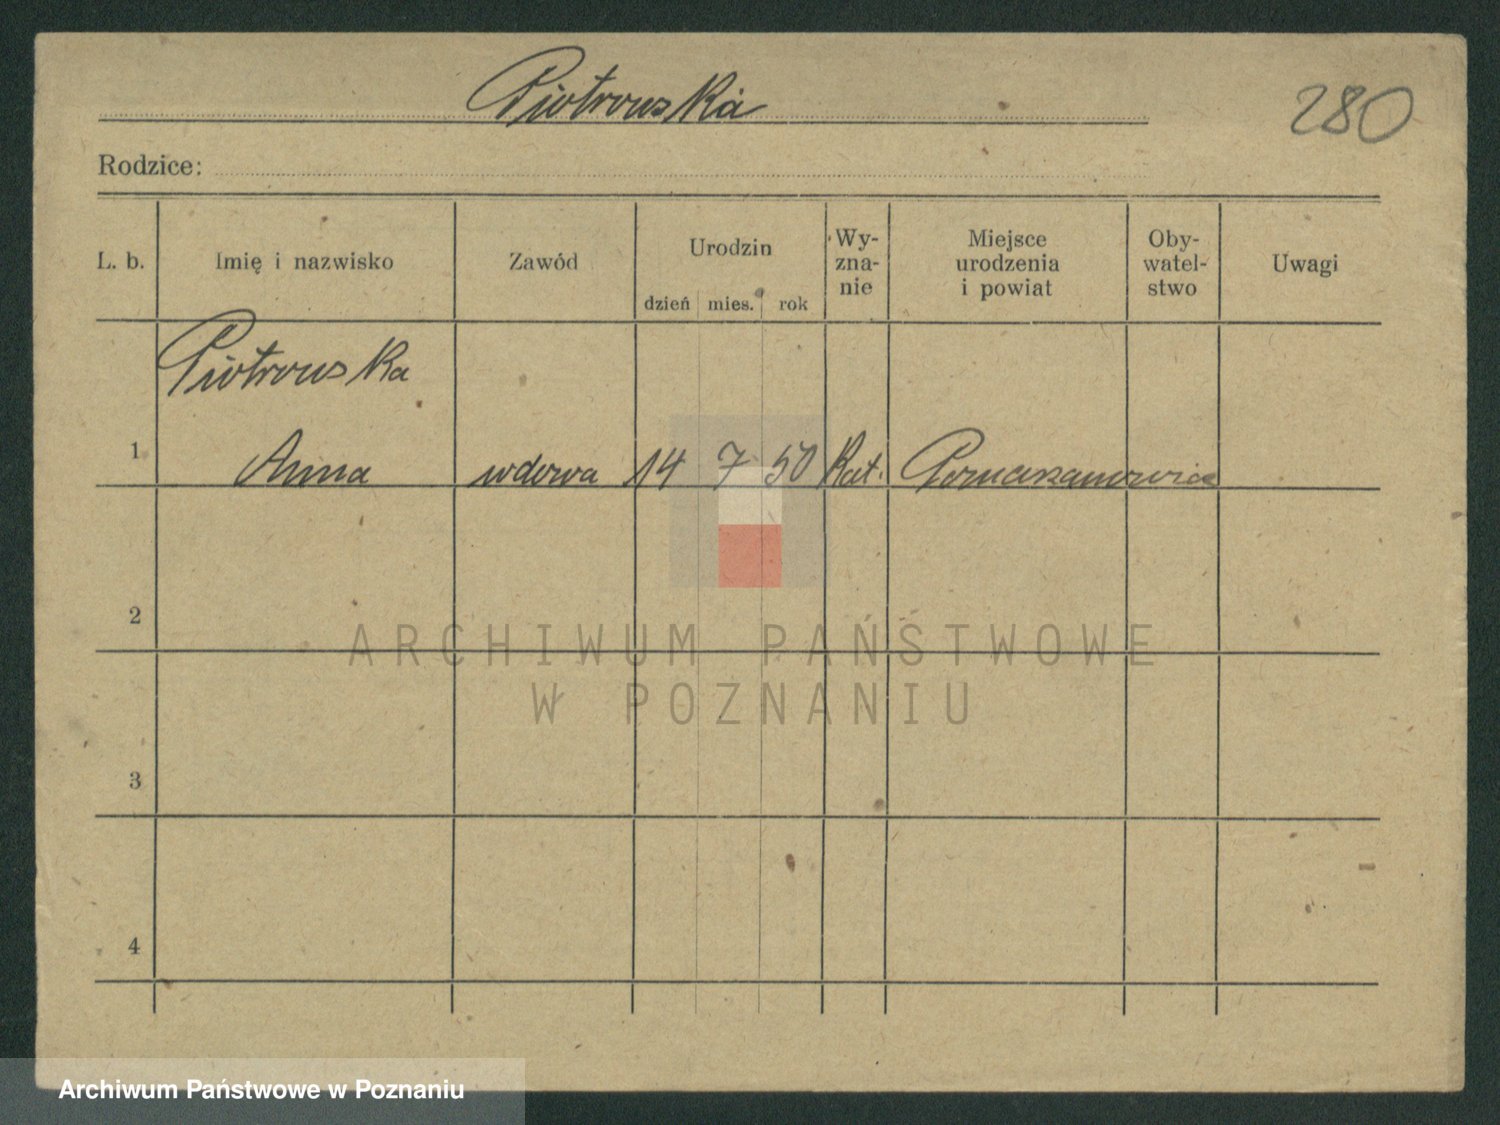 Piotrowska
280
Rodzice:
L. b. Imię i nazwisko Zawód Urodzin dzień mies. rok Wy-zna-nie Miejsce urodzenia i powiat Oby-watel-stwo Uwagi
Piotrowska
1 Anna wdowa 14 7 50 Kat.
2
ARCHIWUM PAŃSTWOWE
W POZNANIU
3
4
Archiwum Państwowe w Poznaniu